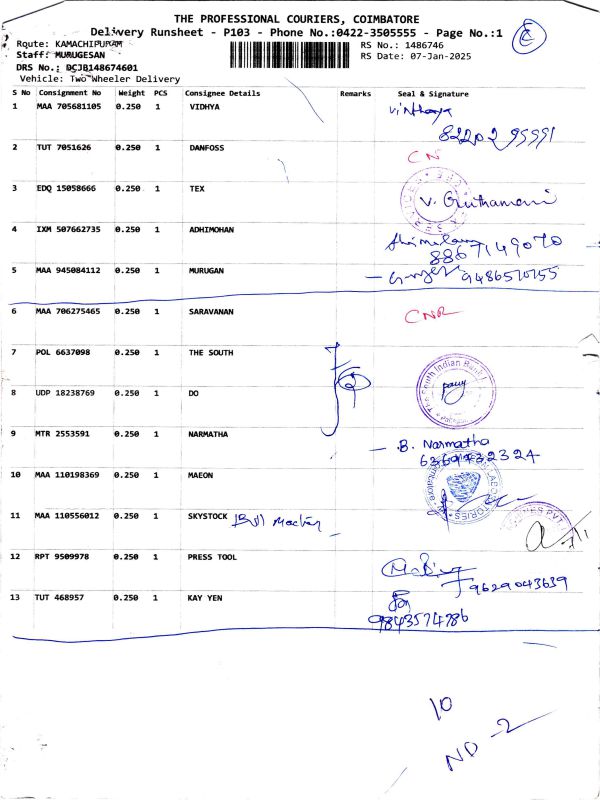 THE PROFESSIONAL COURIERS, COIMBATORE
Delivery Runsheet - P103 - Phone No.:0422-3505555 - Page No.:1
Route: KAMACHIPURAM RS No.: 1486746
Staff: MURUGESAN RS Date: 07-Jan-2025
DRS No.: DCJB148674601
Vehicle: Two Wheeler Delivery
S No Consignment No Weight PCS Consignee Details Remarks Seal & Signature
1 MAA 705681105 0.250 1 VIDHYA
2 TUT 7051626 0.250 1 DANFOSS CN
3 EDQ 15058666 0.250 1 TEX
4 IXM 507662735 0.250 1 ADHIMOHAN
8867149070
5 MAA 945084112 0.250 1 MURUGAN
6 MAA 706275465 0.250 1 SARAVANAN CNR
7 POL 6637098 0.250 1 THE SOUTH
The South Indian Bank
8 UDP 18238769 0.250 1 DO
9 MTR 2553591 0.250 1 NARMATHA B. Narmatha
10 MAA 110198369 0.250 1 MAEON
11 MAA 110556012 0.250 1 SKYSTOCK
12 RPT 9509978 0.250 1 PRESS TOOL
9629043639
13 TUT 468957 0.250 1 KAY YEN
9843574786
10
ND-2